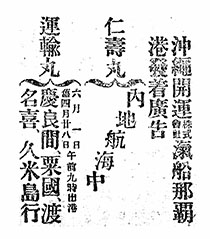 沖繩開運株式會社滊船那覇
港發着廣告
仁壽丸
内地航海中
運輸丸
六月一日
舊四月廿八日
午前九時出港
慶良間、粟國、渡
名喜、久米島行